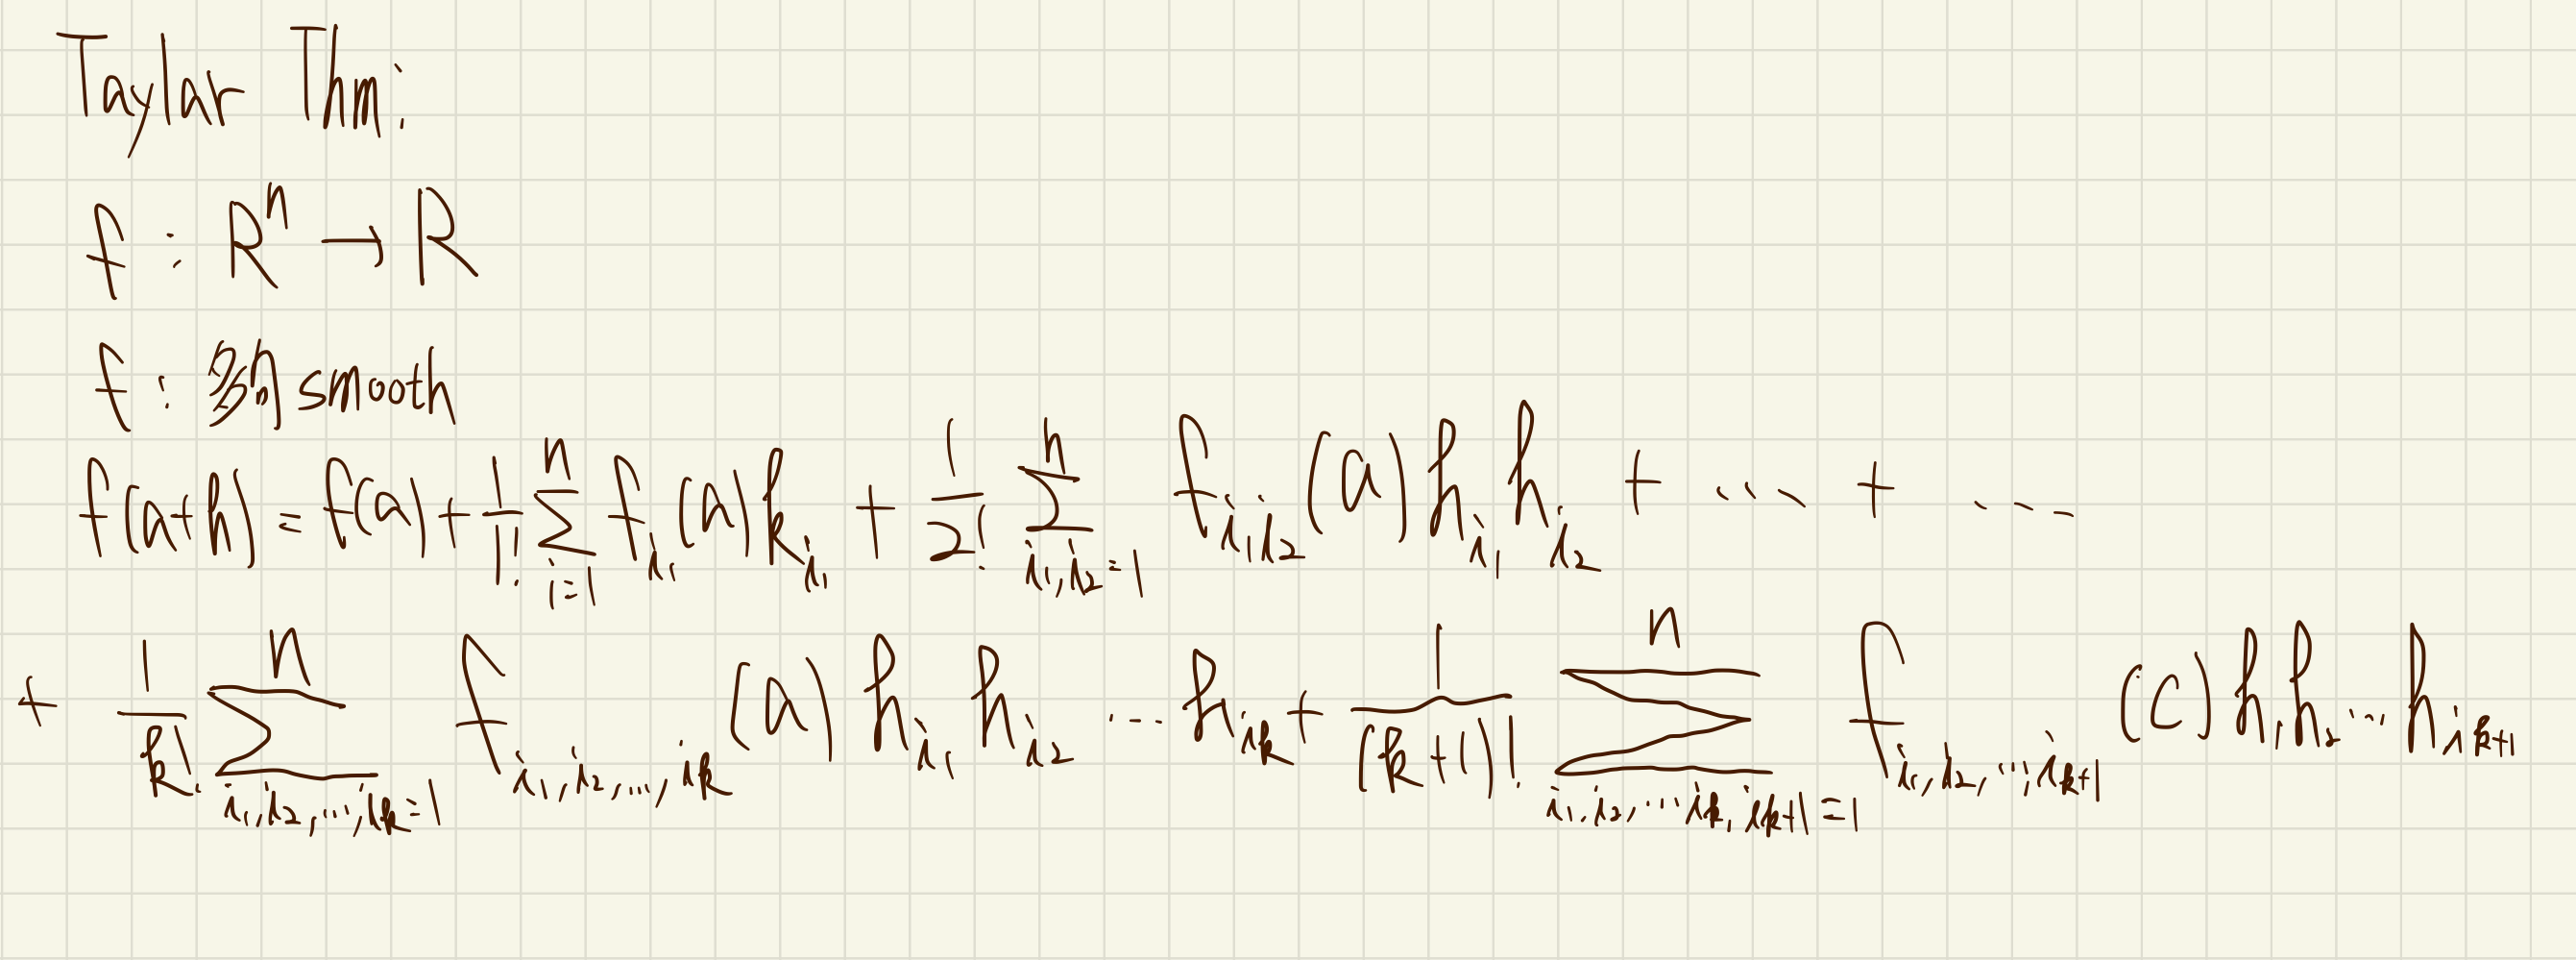 Taylar Thm:
f : Rⁿ → R
f : 多n smooth
f(a+h) = f(a) + 1/1! Σ_{i=1}^{n} f_{i₁}(a) k_{i₁} + 1/2! Σ_{i₁,i₂=1}^{n} f_{i₁i₂}(a) h_{i₁} h_{i₂} + ... + ...
+ 1/k! Σ_{i₁,i₂,...,i_k=1}^{n} f_{i₁,i₂,...,i_k}(a) h_{i₁} h_{i₂} ... h_{i_k} + 1/(k+1)! Σ_{i₁,i₂,...i_k,i_{k+1}=1}^{n} f_{i₁,i₂,...,i_{k+1}}(c) h₁ h₂ ... h_{i_{k+1}}